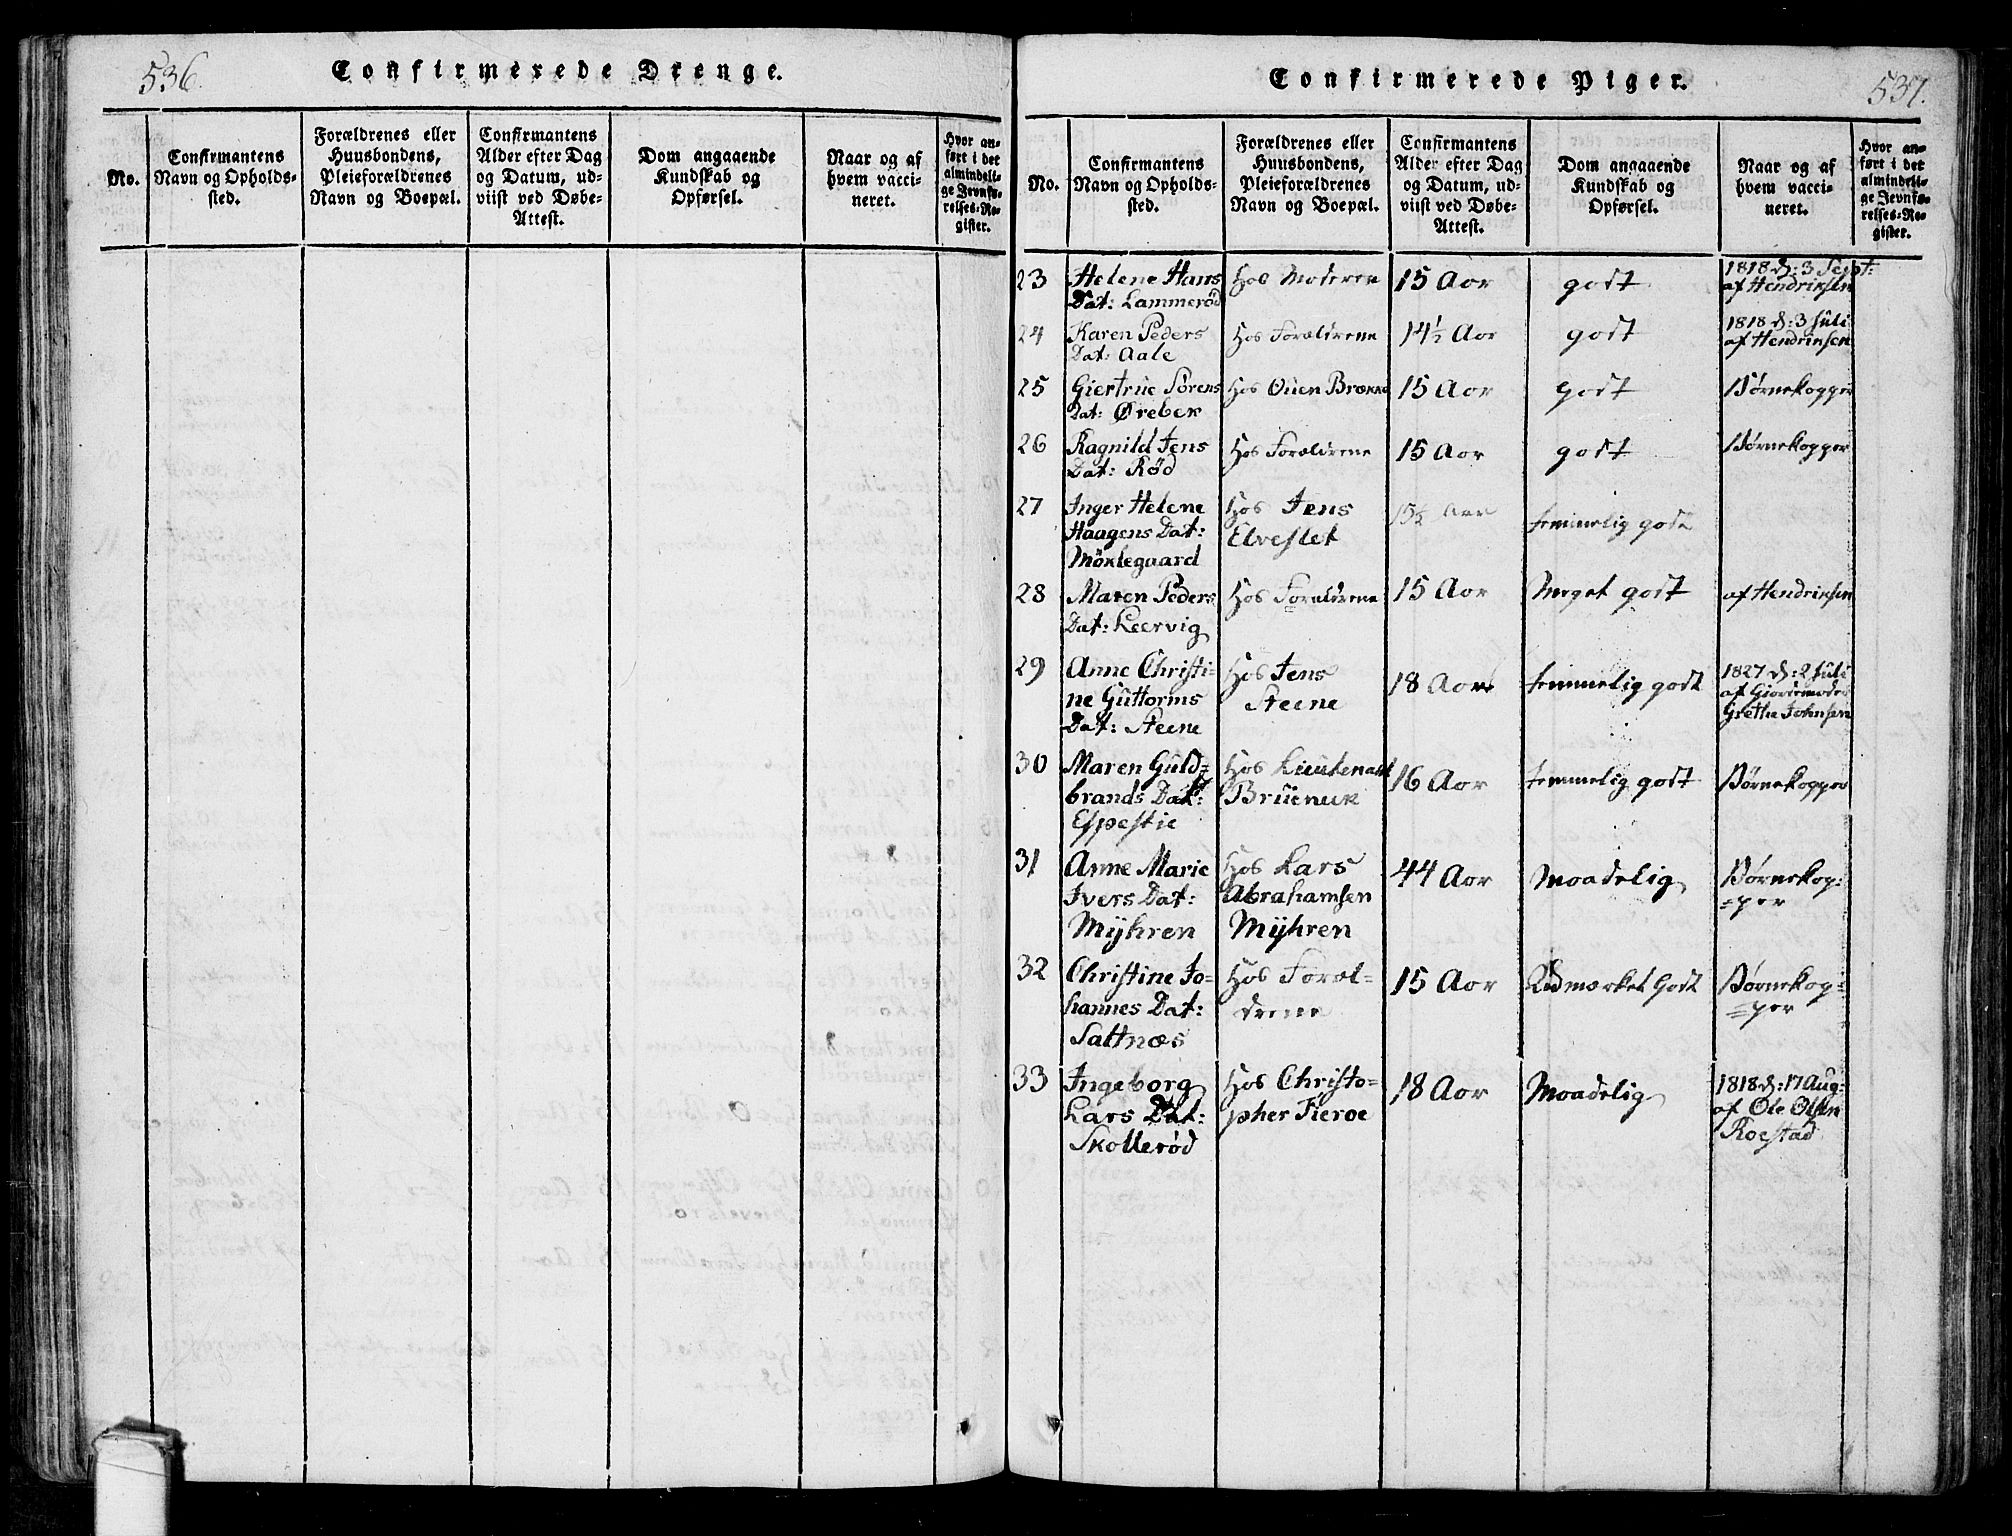 536.
Confirmerede Drenge.
No.
Confirmantens
Navn og Opholds-
sted.
Forældrenes eller
Huusbondens,
Pleieforældrenes
Navn og Boepæl.
Confirmantens
Alder efter Dag
og Datum, ud-
viist ved Døbe-
Attest.
Dom angaaende
Kundskab og
Opførsel.
Naar og af
hvem vacci-
neret.
Hvor an-
ført i det
almindeli-
ge Jevnfø-
relses-Re-
gister.
Confirmerede Piger.
537.
No.
Confirmantens
Navn og Opholds-
sted.
Forældrenes eller
Huusbondens,
Pleieforældrenes
Navn og Boepæl.
Confirmantens
Alder efter Dag
og Datum, ud-
viist ved Døbe-
Attest.
Dom angaaende
Kundskab og
Opførsel.
Naar og af
hvem vacci-
neret.
Hvor an-
ført i det
almindeli-
ge Jevnfø-
relses-Re-
gister.
23 Helene Hans
Dat: Lammerød
Hos Moderen
15 Aar
godt
1818 d: 3 Sept:
af Hendriksen
24 Karen Peders
Dat: Aale
Hos Forældrene
14½ Aar
godt
1818 d: 3 Juli
af Hendriksen
25 Giertrue Sørens
Dat: Ørebek
Hos Ouen Brække
15 Aar
godt
Børnekopper
26 Ragnild Jens
Dat: Rød
Hos Forældrene
15 Aar
godt
Børnekopper
27 Inger Helene
Haagens Dat:
Möklegaard
Hos Jens
Elveslet
15½ Aar
temmelig godt
28 Maren Peders
Dat: Leervig
Hos Forældrene
15 Aar
Meget godt
af Hendriksen
29 Anne Christi-
ne Guttorms
Dat: Steene
Hos Jens
Steene
18 Aar
temmelig godt
1827 d: 2 Juli
af Giordemoder
Grethe Johnsen
30 Maren Guld=
brands Dat:
Espestie
Hos Lieutenant
Brüenük
16 Aar
temmelig godt
Børnekopper
31 Anne Marie
Ivers Dat:
Mÿhren
Hos Lars
Abrahamsen
Mÿhren
44 Aar
Maadelig
Børnekop:
=per
32 Christine Jo=
hannes Dat:
Saltnæs
Hos Foræl-
drene
15 Aar
Udmærket Godt
Børnekop:
=per
33 Ingeborg
Lars Dat:
Skollerød
Hos Christo=
pher Fieroe
18 Aar
Maadelig
1818 d: 17 Aug:
af Ole Olsen
Roestad